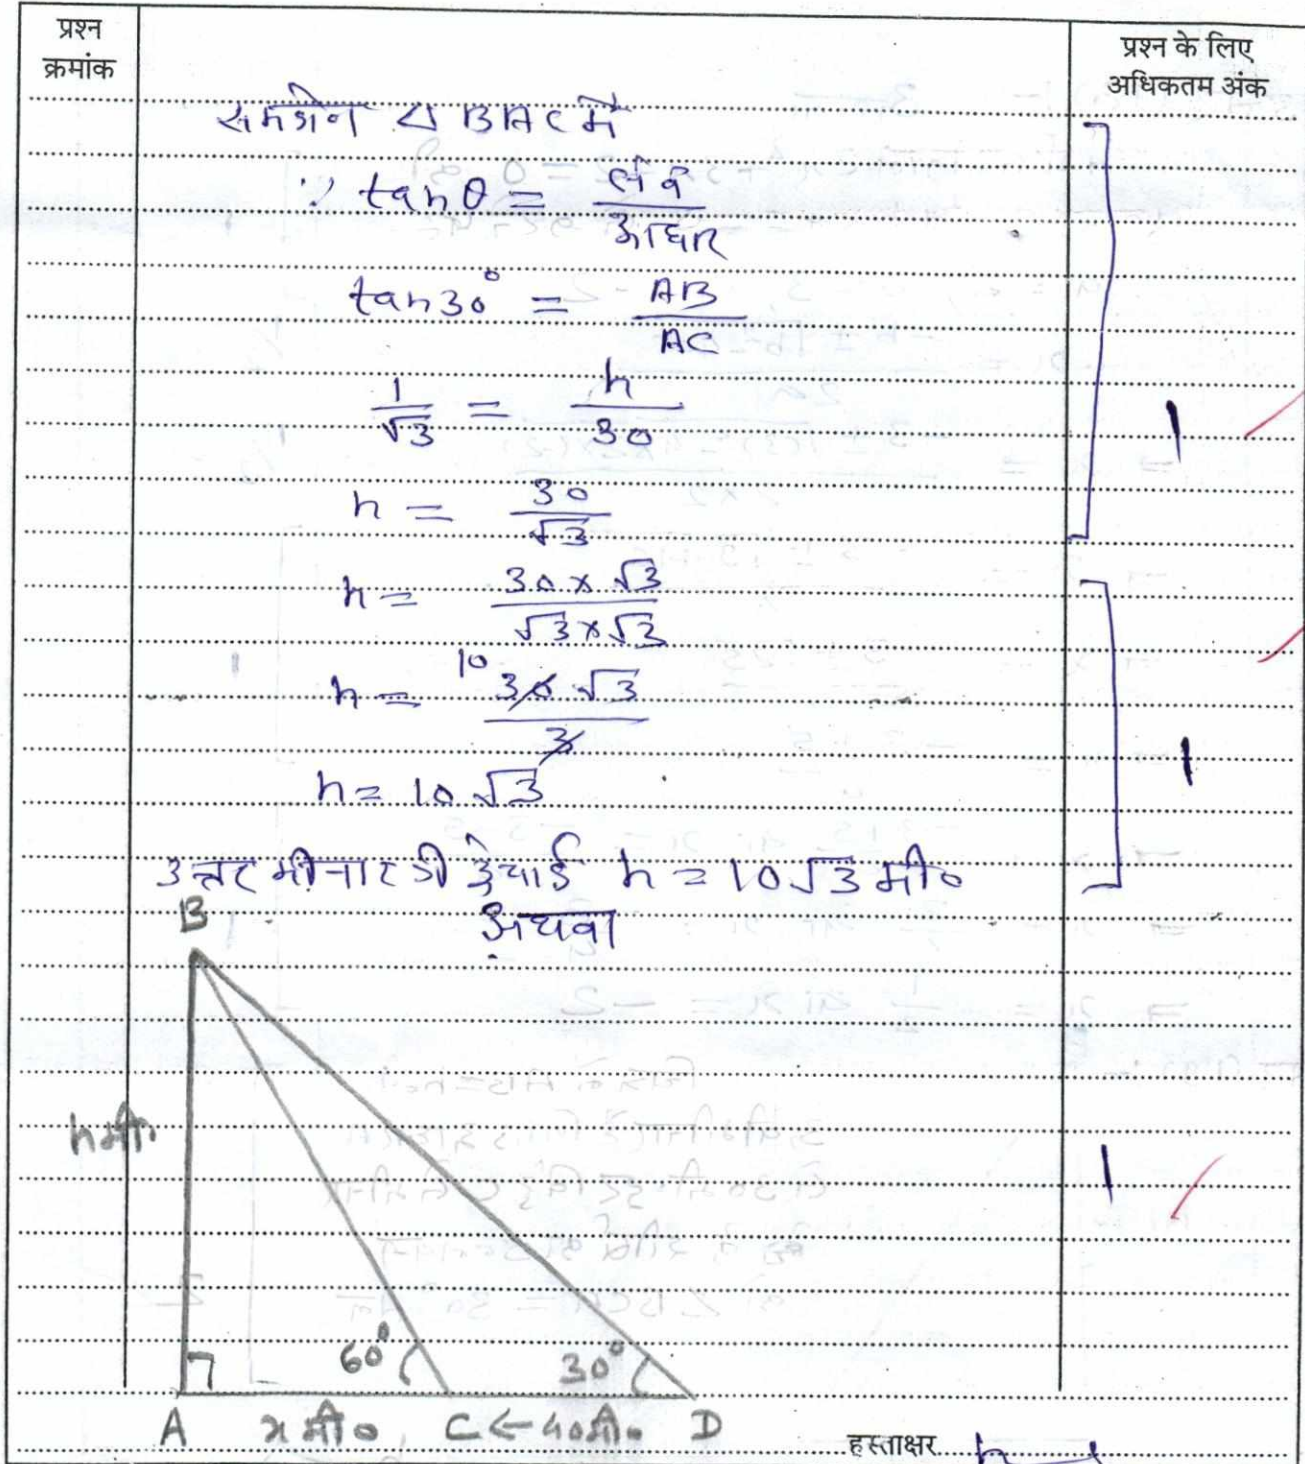 प्रश्न
क्रमांक
प्रश्न के लिए
अधिकतम अंक
समकोण Δ BAC में
∵ tanθ = लंब / आधार
tan30° = AB / AC
1/√3 = h/30
1
h = 30/√3
h = 30×√3 / √3×√3
h = 10 30√3 / 3
1
h = 10√3
उत्तर मीनार की ऊँचाई h = 10√3 मी०
अथवा
B
h मी०
1
60°
30°
A x मी० C ← 40मी० D
हस्ताक्षर